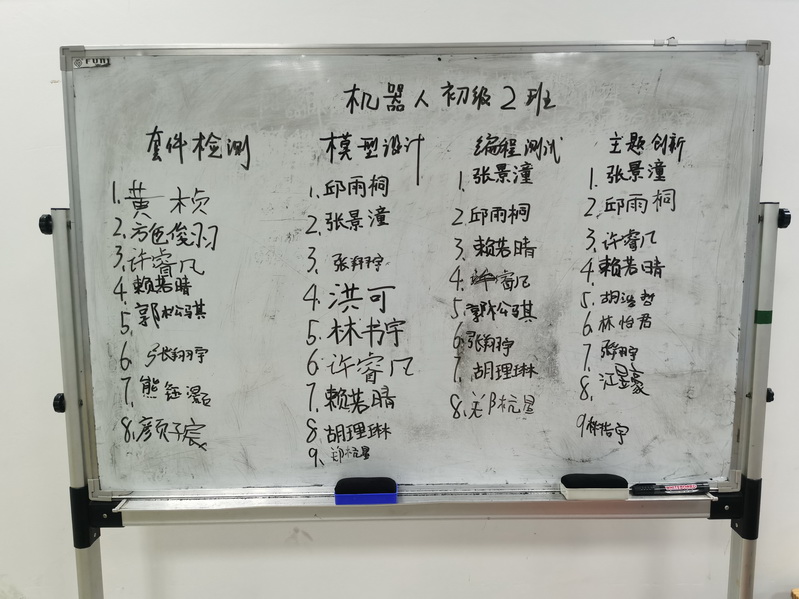 机器人初级2班
套件检测
1. 黄桢
2. 方色俊羽
3. 许睿凡
4. 赖若晴
5. 郭松骐
6. 张翔宇
7. 熊钰
8. 颜子宸
模型设计
1. 邱雨桐
2. 张景潼
3. 张翔宇
4. 洪可
5. 林书宇
6. 许睿凡
7. 赖若晴
8. 胡理琳
9. 郑杭星
编程测试
1. 张景潼
2. 邱雨桐
3. 赖若晴
4. 许睿凡
5. 郭松骐
6. 张翔宇
7. 胡理琳
8. 郑杭星
主题创新
1. 张景潼
2. 邱雨桐
3. 许睿凡
4. 赖若晴
5. 胡浩哲
6. 林怡君
7. 张翔宇
8. 江昱豪
9. 宇